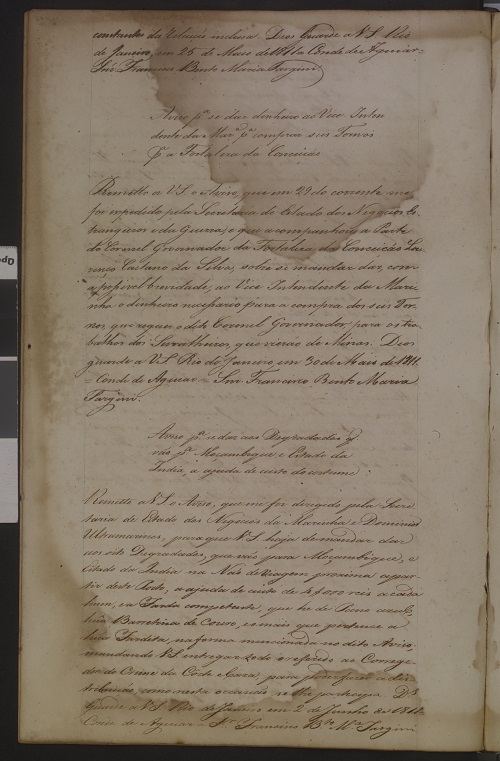 constantes da Relação incluza. Deos Guarde a VS. Rio
de Janeiro, em 25 de Maio de 1811. Conde de Aguiar =
Snr. Francisco Bento Maria Targini
Avizo pª. se dar dinheiro ao Vice Inten
dente da Marª. pª. compra seis Tornos
pª. a Fortaleza da Conceição
Remetto a VS. o Avizo, que em 29 do corrente me
foi expedido pela Secretaria de Estado dos Negocios Es
trangeiros e da Guerra, e que acompanhou a Parte
do Coronel Governador da Fortaleza da Conceição
Caetano da Silva, sobre se mandar dar, com
a possivel brevidade, ao Vice Intendente da Mari
nha o dinheiro necessario para a compra dos seis Tor
nos, que requer o dito Coronel Governador, para os tra
balhos dos Serralheiros, que virão de Minas. Deos
guarde a VS. Rio de Janeiro, em 30 de Maio de 1811.
= Conde de Aguiar = Snr. Francisco Bento Maria
Targini.
Avizo pª. se dar aos Degradados q.
vão pª. Moçambique e Estado da
India, a ajuda de custo do costume
Remetto a VS. o Avizo, que me foi dirigido pela Secre
taria de Estado dos Negocios da Marinha e Dominios
Ultramarinos, para que VS. haja de mandar dar
aos Degradados, que vão para Moçambique, e
Estado da India na Náo de Viagem proxima a par
tir deste Porto, a ajuda de custo de 4$000 reis a cada
hum, e a Farda competente, que he de Panno
huma Barretina de Couro, e o mais que pertence a
huma Fardeta, na forma mencionada no dito Avizo,
mandando VS. entregar todo o referido ao Correge
dor do Crime da Corte e Caza, para proceder a dis
tribuição, como nesta occasião se lhe participa. Ds.
Guarde a VS. Rio de Janeiro em 2 de Junho de 1811.
Conde de Aguiar = Sr. Francisco Bto. Mª. Targini